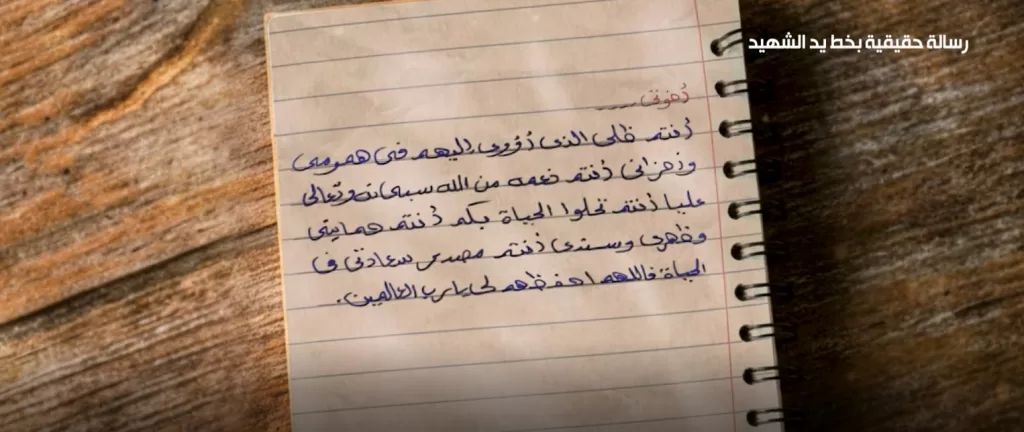 رسالة حقيقية بخط يد الشهيد
أخوتي
أنتم ظلي الذي أؤوي إليهم في همومي
وأحزاني أنتم نعمه من الله سبحانه وتعالى
عليا أنتم تحلوا الحياة بكم أنتم حمايتي
وظهري وسندي أنتم مصدر سعادتي في
الحياة فاللهم احفظهم لي يا رب العالمين.